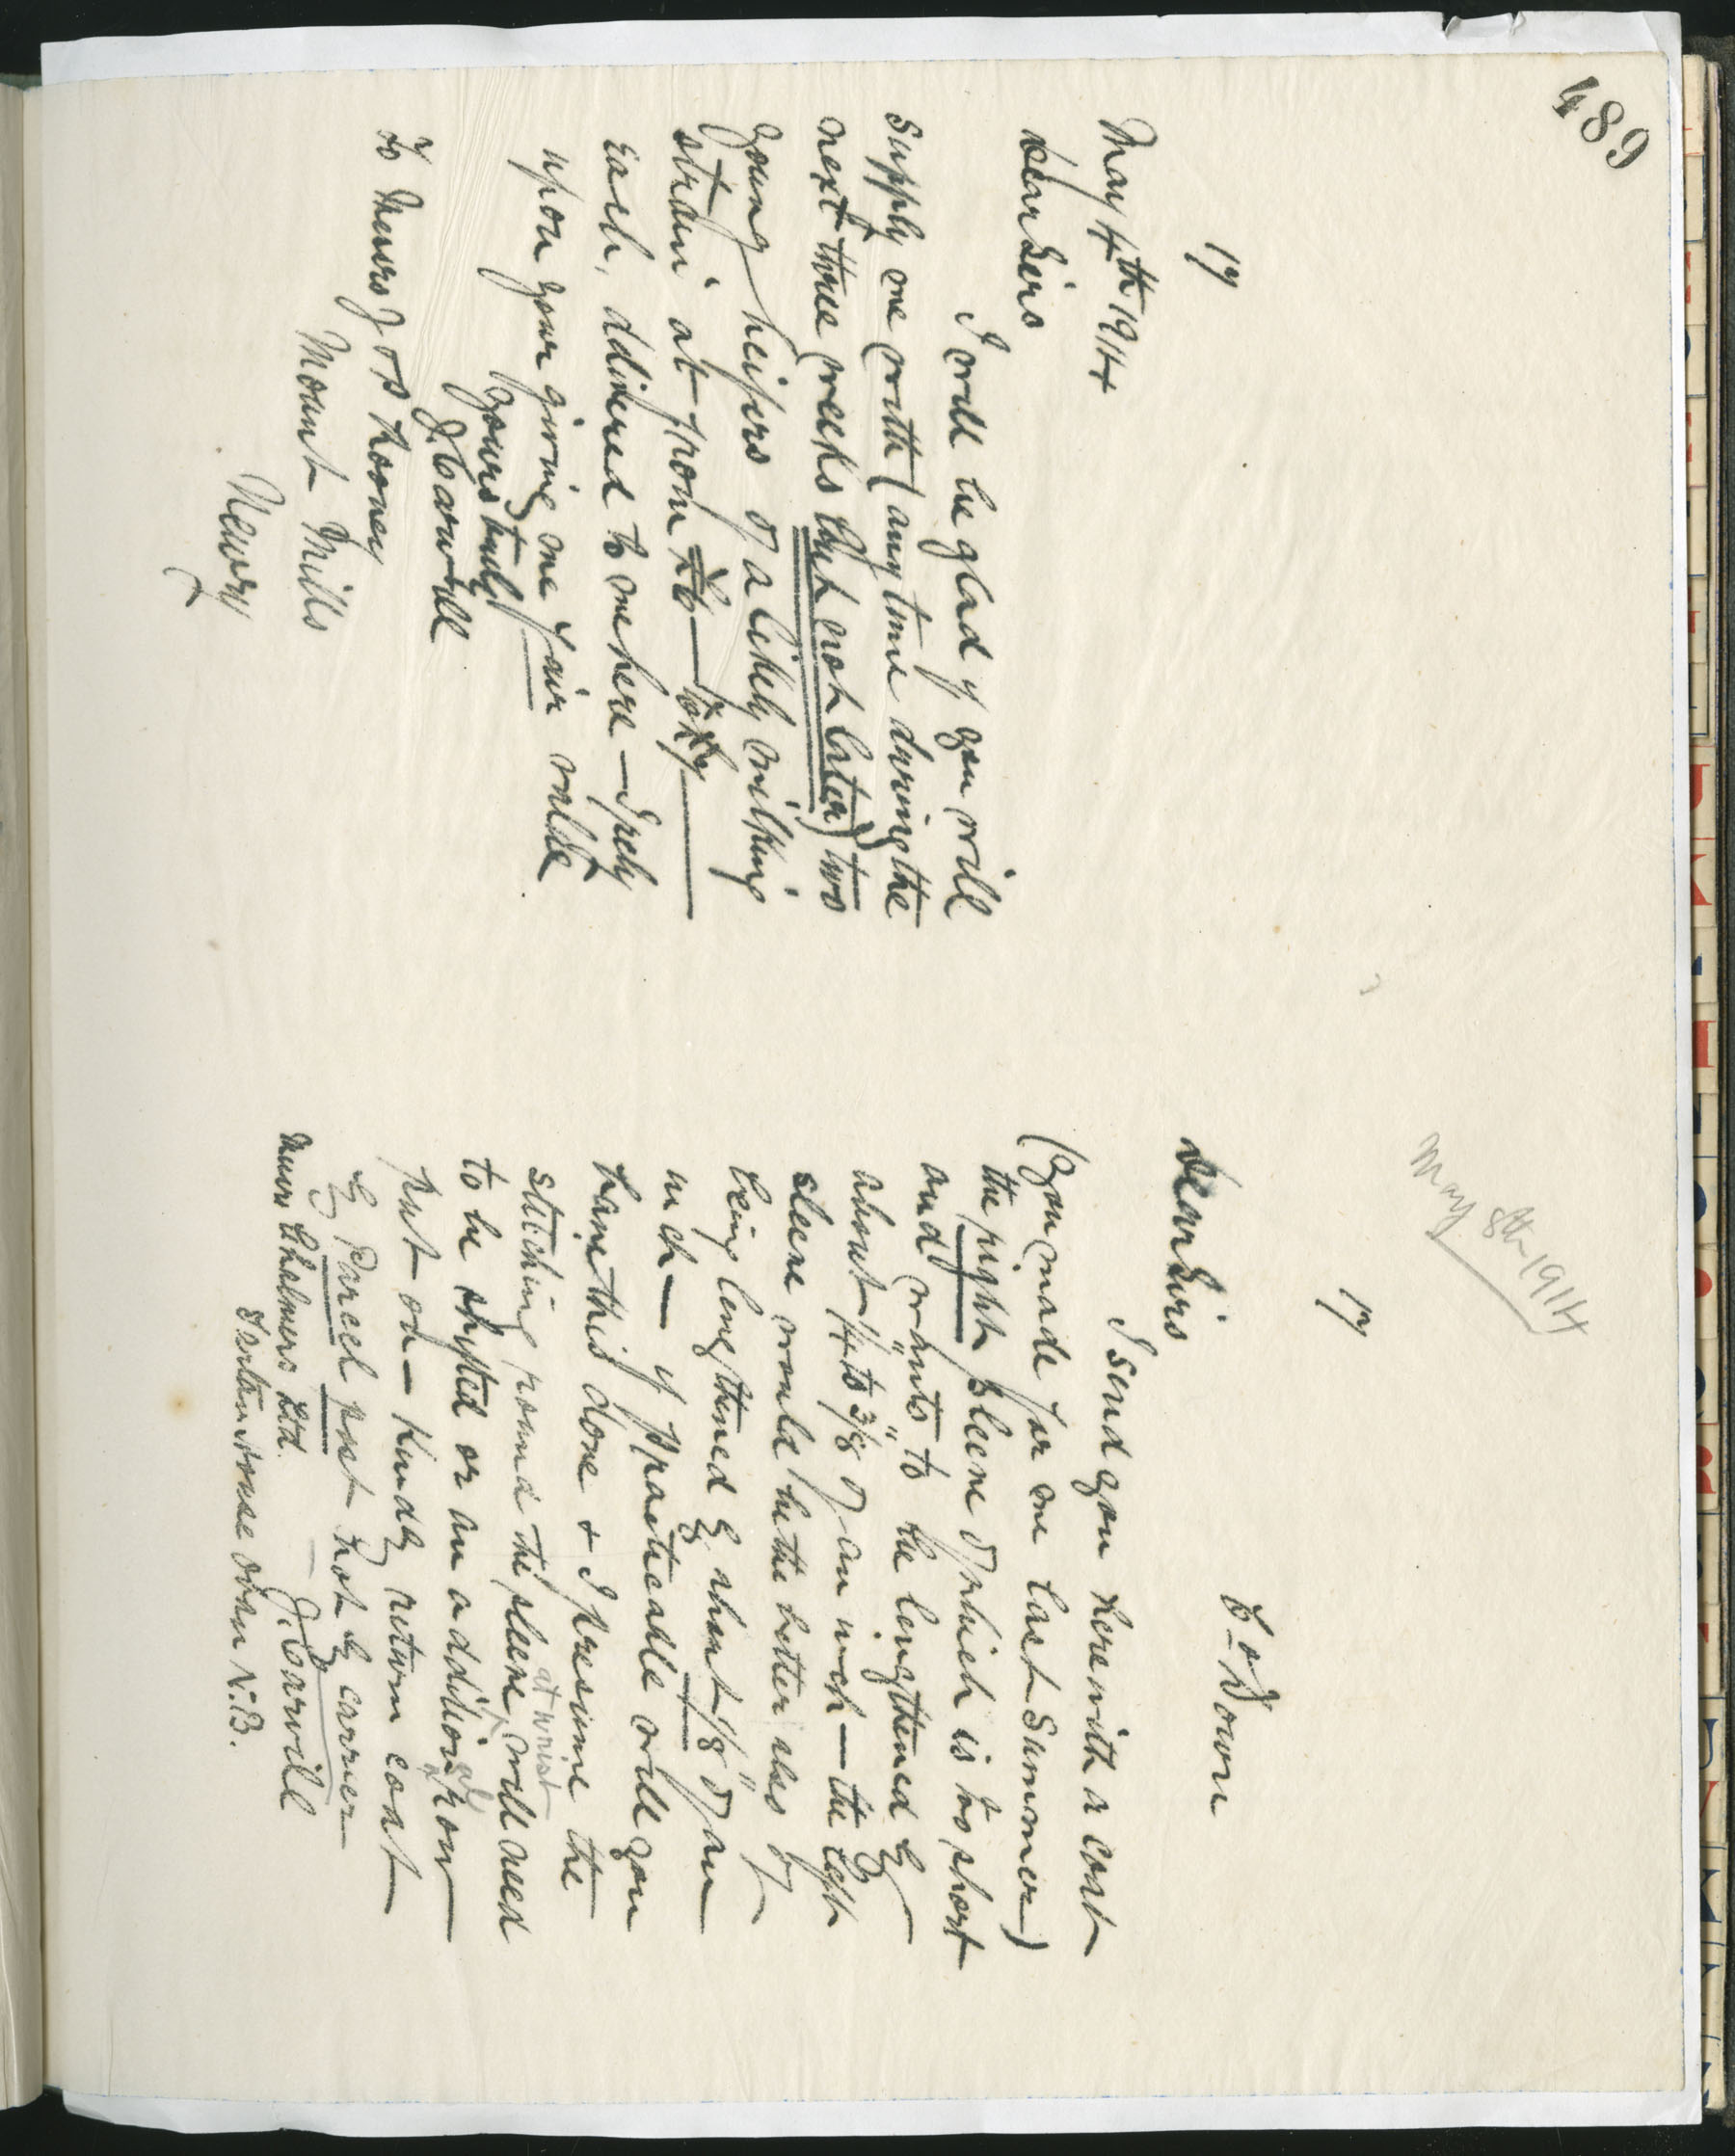 489
17
May 4th 1914
Dear Sirs
I will be glad if you will
supply me with (any time during the
next three weeks but not later) two
young heifers of a likely milking
strain at from
each, delivered to me here — I rely
upon your giving me fair value
Yours truly
J. Carvill
To Messrs J & P Rooney
Mount Mills
Newry
May 8th 1914
17
Co Down
Dear Sirs
I send you herewith a coat
(you made for me last summer)
the right sleeve of which is too short
and wants to be lengthened by
about 1/4" to 3/8" of an inch — the left
sleeve would be the better also of
being lengthened by about 1/8" of an
inch — if practicable will you
have this done & I presume the
stitching round the sleeve at wrist will need
to be shifted or an additional row
put on — Kindly return coat
by Parcel post not by carrier —
J. Carvill
Messrs Chalmers Ltd.
Oban N.B.